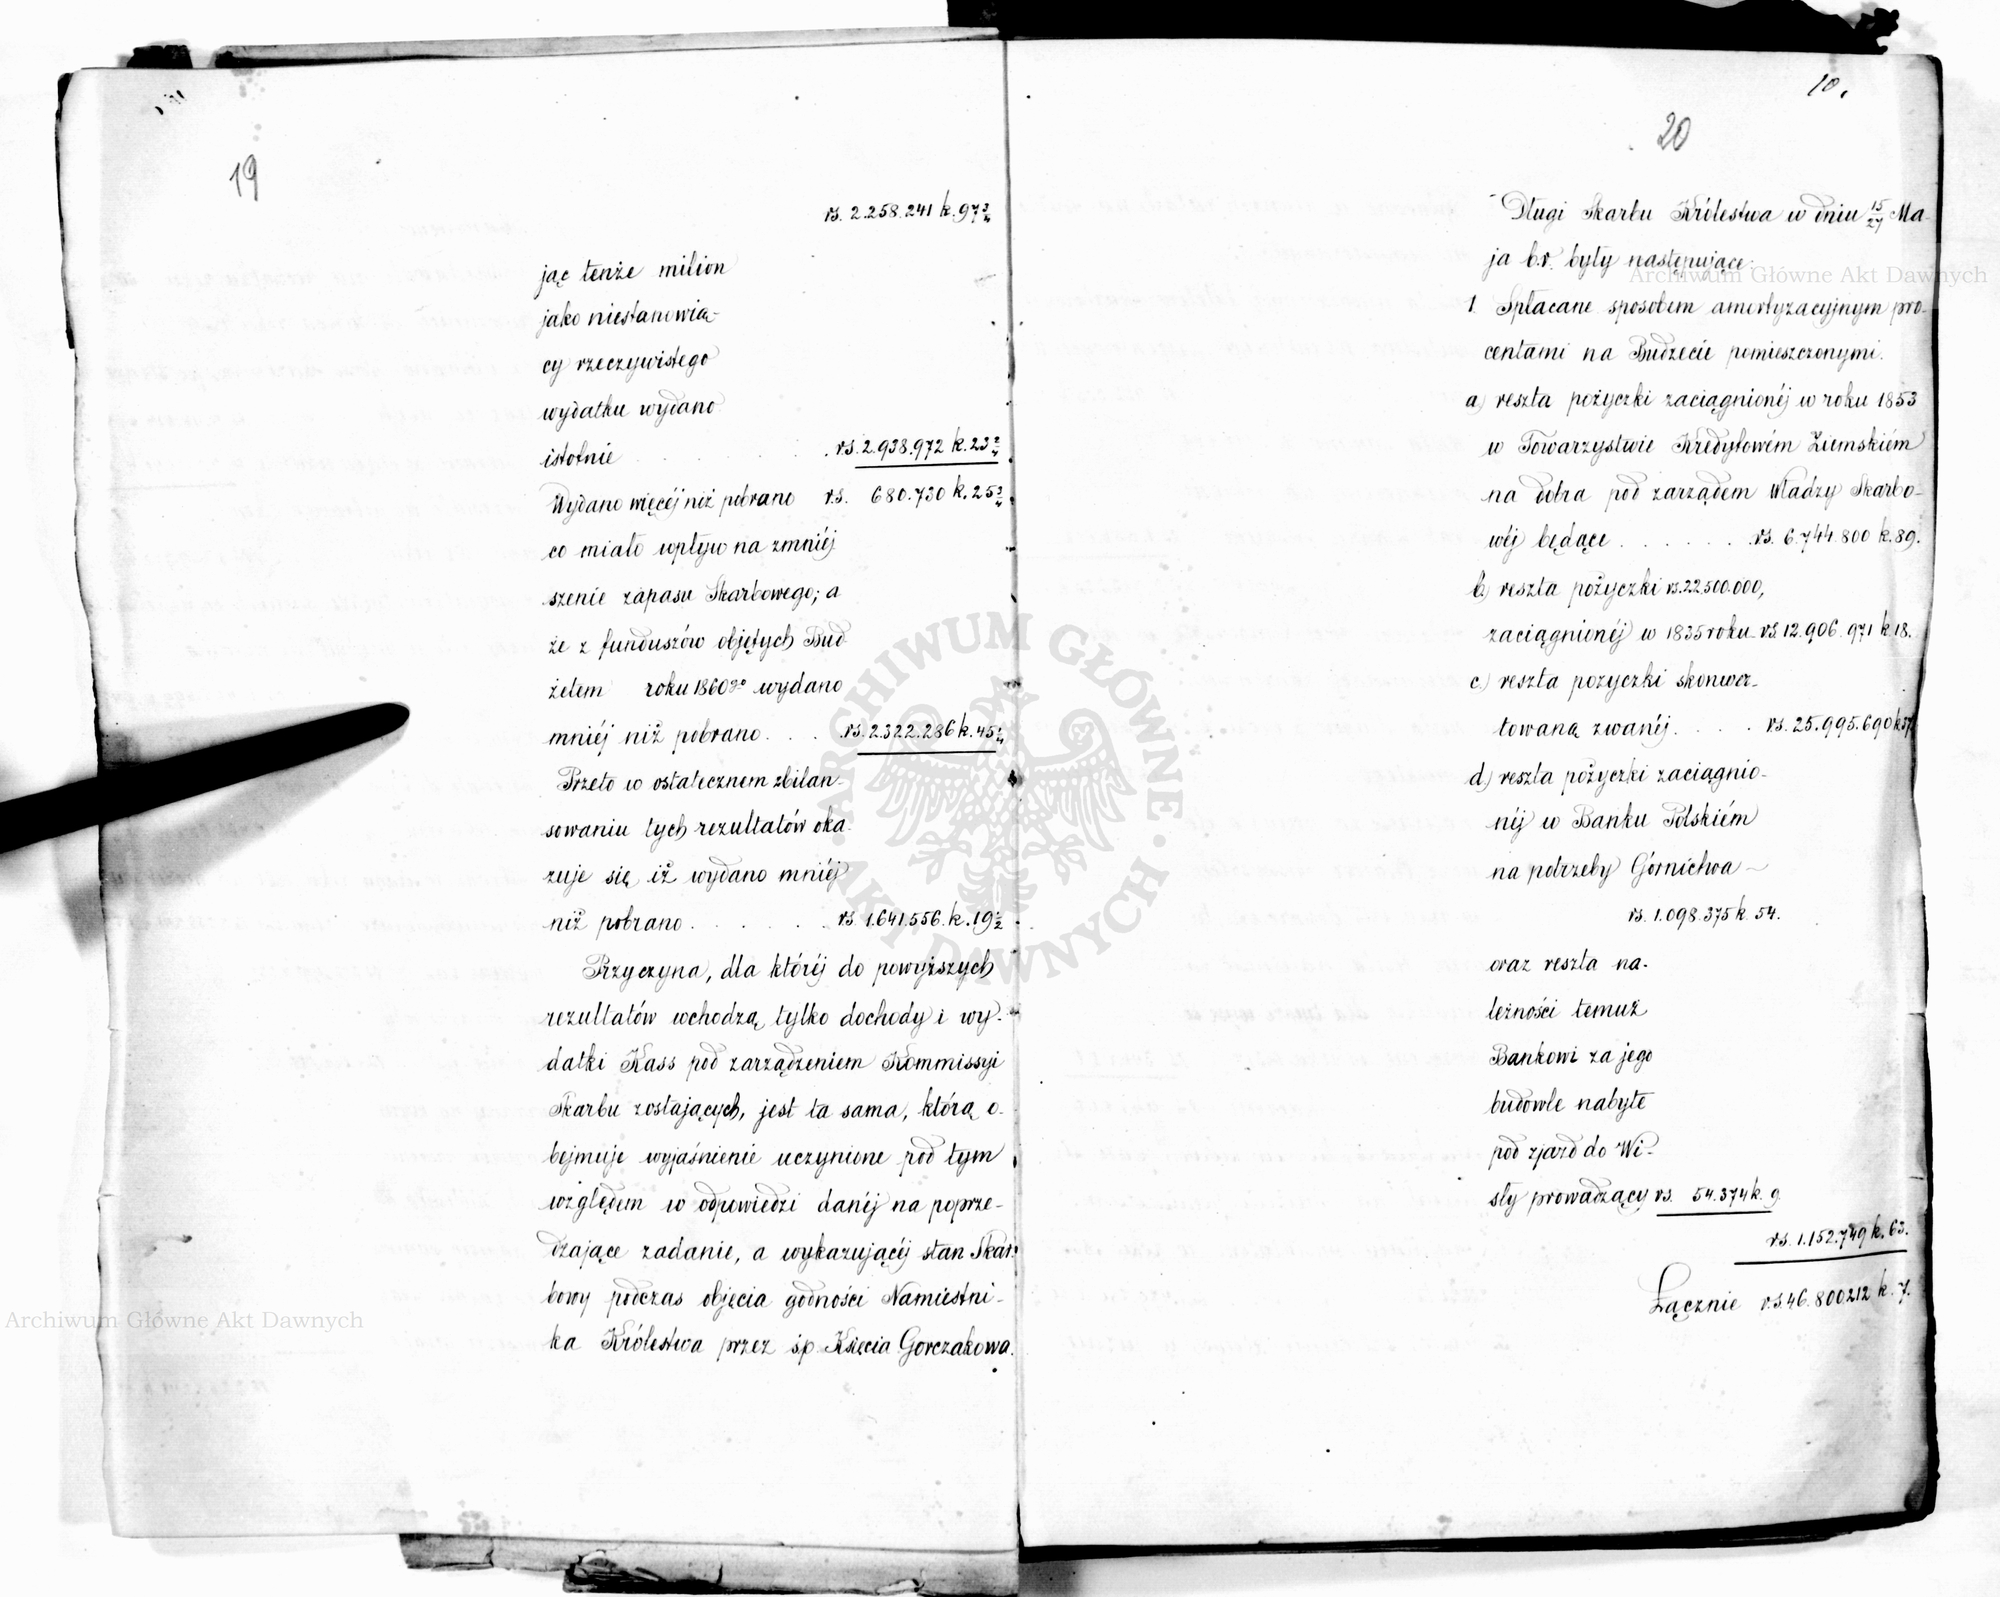 19
rs. 2.258.241 k. 97 3/4
jąc tenże milion
jako niestanowią-
cy rzeczywistego
wydatku wydano
istotnie . . . . . . rs. 2.938.972 k. 23 2/4
Wydano więcéj niż pobrano rs. 680.730 k. 25 3/4
co miało wpływ na zmniéj
szenie zapasu Skarbowego; a
że z funduszów objętych Bud
żetem roku 1860go wydano
mniéj niż pobrano . . . rs. 2.322.286 k. 45 1/4
Przeto w ostatecznem zbilan-
sowaniu tych rezultatów oka-
zuje się iż wydano mniéj
niż pobrano . . . . . rs. 1.641.556 k. 19 1/2
Przyczyna, dla któréj do powyższych
rezultatów wchodzą tylko dochody i wy-
datki Kass pod zarządzeniem Kommissyi
Skarbu zostających, jest ta sama, którą o-
bejmuje wyjaśnienie uczynione pod tym
względem w odpowiedzi danéj na poprze-
dzające zadanie, a wykazującéj stan Skar-
bowy podczas objęcia godności Namiestni-
ka Królestwa przez śp. Księcia Gorczakowa.
10.
20
Długi Skarbu Królestwa w dniu 15/27 Ma-
ja b.r. były następujące:
1. Spłacane sposobem amortyzacyjnym pro-
centami na Budżecie pomieszczonymi.
a) reszta pożyczki zaciągnionéj w roku 1853
w Towarzystwie Kredytowém Ziemskiém
na dobra pod zarządem Władzy Skarbo-
wéj będące . . . . . . rs. 6.744.800 k. 89.
b) reszta pożyczki rs. 22.500.000,
zaciągnionéj w 1835 roku rs. 12.906.971 k. 18.
c.) reszta pożyczki skonwer-
towaną zwanéj . . . . rs. 25.995.690 k. 37
d) reszta pożyczki zaciągnio-
néj w Banku Polskiém
na potrzeby Górnictwa –
rs. 1.098.375 k. 54.
oraz reszta na-
leżności temuż
Bankowi za jego
budowle nabyte
pod zjazd do Wi-
sły prowadzący rs. 54.374 k. 9
rs. 1.152.749 k. 63.
Łącznie rs. 46.800212 k. 7.
Archiwum Główne Akt Dawnych
Archiwum Główne Akt Dawnych
ARCHIWUM GŁÓWNE · AKT DAWNYCH ·